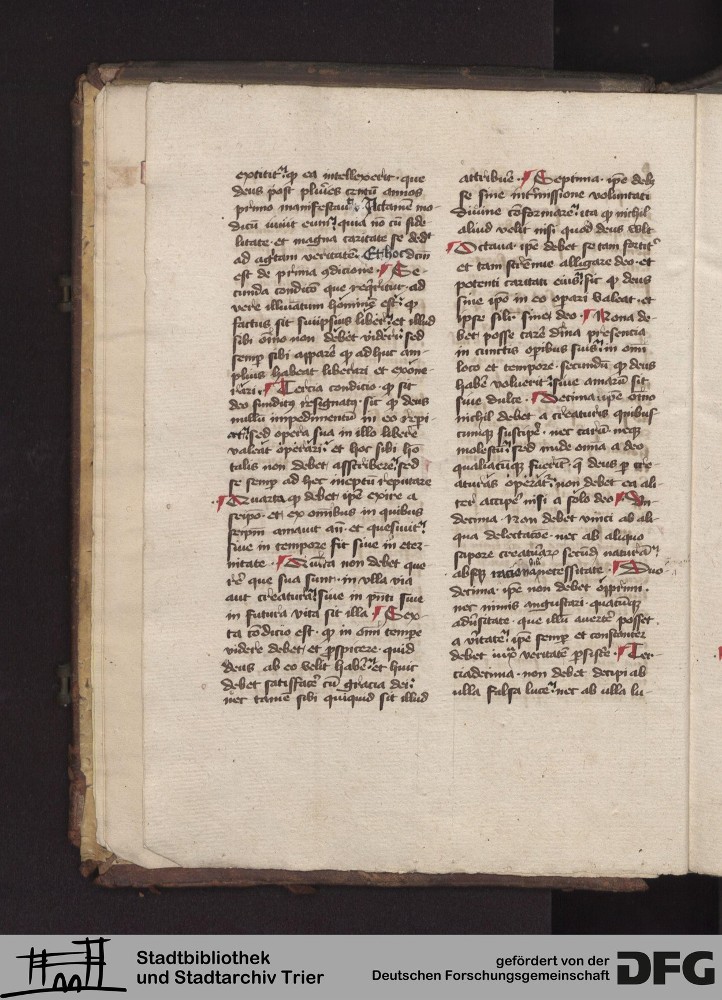 extitit q ea intellexerit que
deus post plures centu annos
primo manifestau Actamen mo-
dicu iuuit eum quia no cu fide
litate et magna caritate se dedt
ad agtam veritate Et hoc dcm
est de prima gdicione Se-
cunda condico que reqritur ad
vere illuiatum homine est q
factus sit suiipsius liber et illud
sibi oino non debet videri sed
semp sibi appare q adhuc am-
plius habeat liberari et exone-
rari Tercia condicio q sit
deo funditus resignatus sic q deus
nullu impedimentu in eo repi-
at sed opera sua in illo libere
valeat operari et hoc sibi ho
talis non debet asscribere sed
se semp ad hec ineptu reputare
Quarta q debet ipe exire a
seipo et ex omnibus in quibus
seipm amauit aut quesiuit
siue in tempore sit siue in eter-
nitate Quinta non debet que
rere que sua sunt in vlla via
aut creatura siue in pnti siue
in futura vita sit illa Sex-
ta codicio est q in omi tempe
videre debet et pspicere quid
deus ab eo velit habe et huic
debet satisface cu gracia dei
nec tame sibi quiquid sit illud
attribue Septima ipe debz
se sine intmissione voluntati
diuine coformare ita q nichil
aliud velit nisi quod deus vult
Octaua ipe debet se tam fortit
et tam strennue alligare deo et
potenti caritati eius sic q deus
sine ipo in eo opari valeat et
ipse silr sine deo Nona de-
bet posse care dina presencia
in cunctis opibus suis in omi
loco et tempore secundu q deus
habe voluerit siue amaru sit
siue dulce Decima ipe oino
nichil debet a creaturis quibus
cumq suscipe nec caru neq
molestu sed inde omia a deo
qualitcuq fuerit q deus p cre-
aturas operat non debet ea ali-
ter accipe nisi a solo deo Un
decima Non debet vinci ab ali-
qua delectacoe nec ab aliquo
scipore creaturaru secud natura
absq racionabi necessitate Duo
decima ipe non debet opprimi
nec nimis angustari quacuq
aduersitate que illu auerte posset
a vitate ipe semp et constanter
debet iux veritate psiste Ter-
ciadecima non debet decipi ab
vlla falsa luce nec ab vlla lu-
Stadtbibliothek
und Stadtarchiv Trier
gefördert von der
Deutschen Forschungsgemeinschaft
DFG